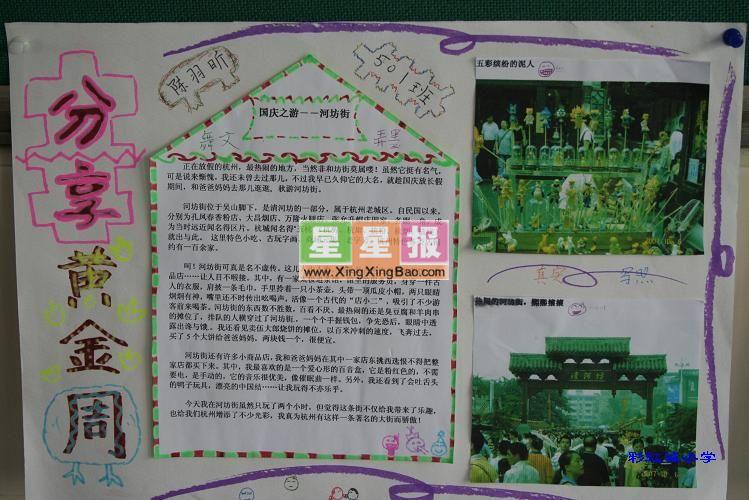 分享黄金周
陈羽昕
501班
国庆之游——河坊街
舞文
弄墨
正在放假的杭州，最热闹的地方，当然非和坊街莫属喽！虽然它挺有名气，
可是说来惭愧，我还未曾去过那儿，不过我早已久仰它的大名，就趁国庆放长假
期间，和爸爸妈妈去那儿逛逛，秋游河坊街。
河坊街位于吴山脚下，是清河坊的一部分，属于杭州老城区。自民国以来，
分别为孔凤春香粉店、大昌烟店、万隆火腿店、
为当时远近闻名得区片，杭城闻名得
就出与此。这里特色小吃、古玩字画、
约有一百余家。
呵！河坊街可真是名不虚传。这儿
品店……让人目不暇接。其中，有一家
人的衣服，肩披一条毛巾，手里拎着一只小茶壶，头带一顶瓜皮小帽，两只眼睛
炯炯有神，嘴里还不时传出吆喝声，活像一个古代的“店小二”，吸引了不少游
客前来喝茶。河坊街的东西数不胜数，百看不厌。最热闹的还是臭豆腐和羊肉串
的摊位了，排队的人横穿过了河坊街，一个个手握钱包，争先恐后，眼睛中透
露出馋与饿。我还看见卖伍大郎烧饼的摊位，以百米冲刺的速度，飞奔过去，
买了5个大饼给爸爸妈妈，两块钱一个，很便宜。
河坊街还有许多小商品店，我和爸爸妈妈在其中一家店东挑西选恨不得把整
家店都买下来。其中，我最喜欢的是一个爱心形的百音盒，它是粉红色的，不需
要电，是手动的，它的音乐很优美，像催眠曲一样。另外，我还看到了会吐舌头
的鸭子玩具，漂亮的中国结……让我玩得不亦乐乎。
今天我在河坊街虽然只玩了两个小时，但觉得这条街不仅给我带来了乐趣，
也给我们杭州增添了不少光彩，我真为杭州有这样一条著名的大街而骄傲！
星星报
www.XingXingBao.com
五彩缤纷的泥人
真实
写照
热闹的河坊街，熙熙攘攘
清河坊